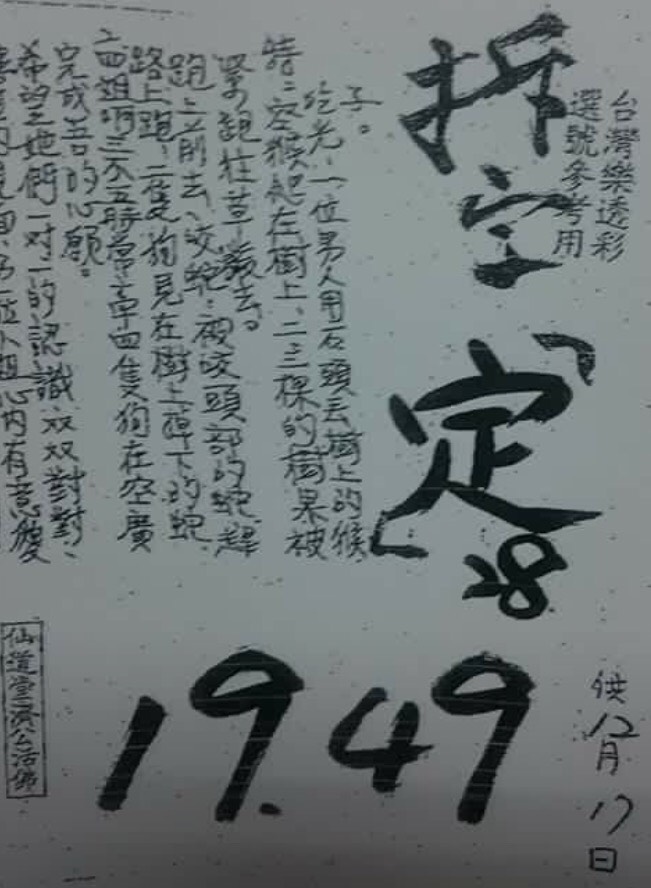 台灣樂透彩
選號參考用
拆字「定」
28
另一位小姐心內有意愛
希望她們一对一的認識、双双對對、
完成吾的心願。
三不五時常牽四隻狗在空廣
路上跑、二隻狗見在樹上掉下的蛇、
跑上前去、咬蛇、被咬頭部的蛇、趕
緊跑往草叢去。
猴起在樹上、二三棵的樹果被
吃光、一位男人用石頭丟樹上的猴
子。
19.49
供12月17日
仙道堂濟公活佛